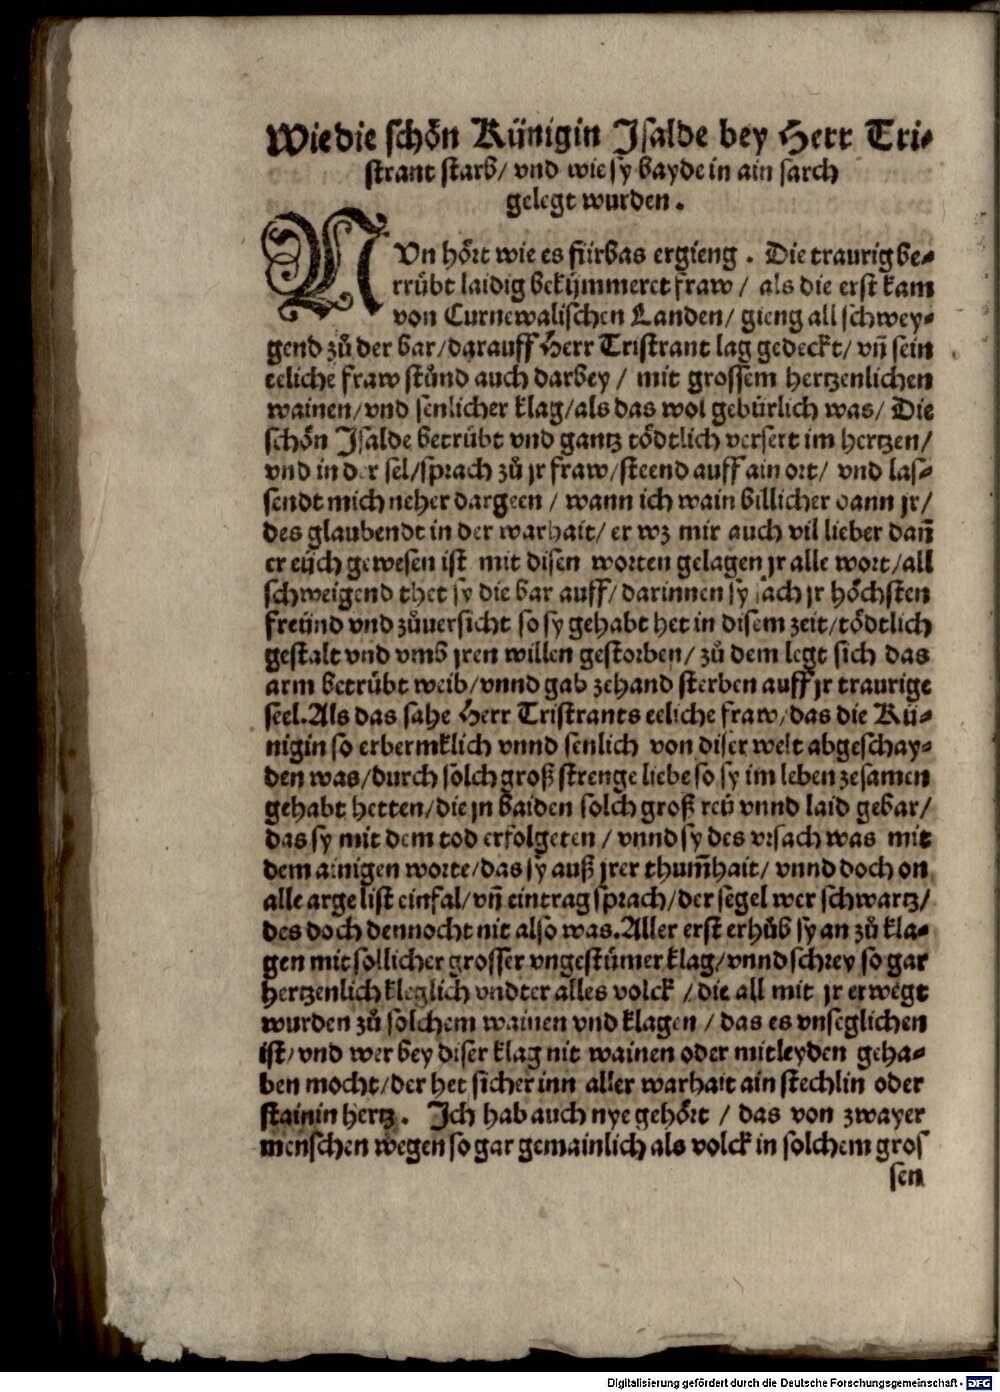 Wie die schön Künigin Jsalde bey Herr Tri-
strant starb/ vnd wie sy bayde in ain sarch
gelegt wurden.
NVn hört wie es fürbas ergieng. Die traurig be-
trübt laidig bekümmeret fraw/ als die erst kam
von Curnewalischen Landen/ gieng all schwey-
gend zů der bar/darauff Herr Tristrant lag gedeckt/ vñ sein
eeliche fraw stůnd auch darbey/ mit grossem hertzenlichen
wainen/vnd senlicher klag/als das wol gebürlich was/ Die
schön Jsalde betrübt vnd gantz tödtlich versert im hertzen/
vnd in der sel/sprach zů jr fraw/steend auff ain ort/ vnd las-
sendt mich neher dargeen/ wann ich wain billicher dann jr/
des glaubendt in der warhait/ er wz mir auch vil lieber dañ
er eüch gewesen ist mit disen worten gelagen jr alle wort/all
schweigend thet sy die bar auff/darinnen sy sach jr höchsten
freünd vnd zůuersicht so sy gehabt het in disem zeit/tödtlich
gestalt vnd vmb jren willen gestorben/ zů dem legt sich das
arm betrübt weib/vnnd gab zehand sterben auff jr traurige
seel. Als das sahe Herr Tristrants eeliche fraw/das die Kü-
nigin so erbermklich vnnd senlich von diser welt abgeschay-
den was/durch solch groß strenge liebe so sy im leben zesamen
gehabt hetten/die jn baiden solch groß reü vnnd laid gebar/
das sy mit dem tod erfolgeten/ vnnd sy des vrsach was mit
dem ainigen worte/das sy auß jrer thum̃hait/ vnnd doch on
alle arge list einfal/vñ eintrag sprach/der segel wer schwartz/
des doch dennocht nit also was. Aller erst erhůb sy an zů kla-
gen mit sollicher grosser vngestümer klag/vnnd schrey so gar
hertzenlich kleglich vndter alles volck/die all mit jr erwegt
wurden zů solchem wainen vnd klagen/ das es vnseglichen
ist/vnd wer bey diser klag nit wainen oder mitleyden geha-
ben mocht/der het sicher inn aller warhait ain stechlin oder
stainin hertz. Jch hab auch nye gehört/ das von zwayer
menschen wegen so gar gemainlich als volck in solchem gros
sen
Digitalisierung gefördert durch die Deutsche Forschungsgemeinschaft - DFG